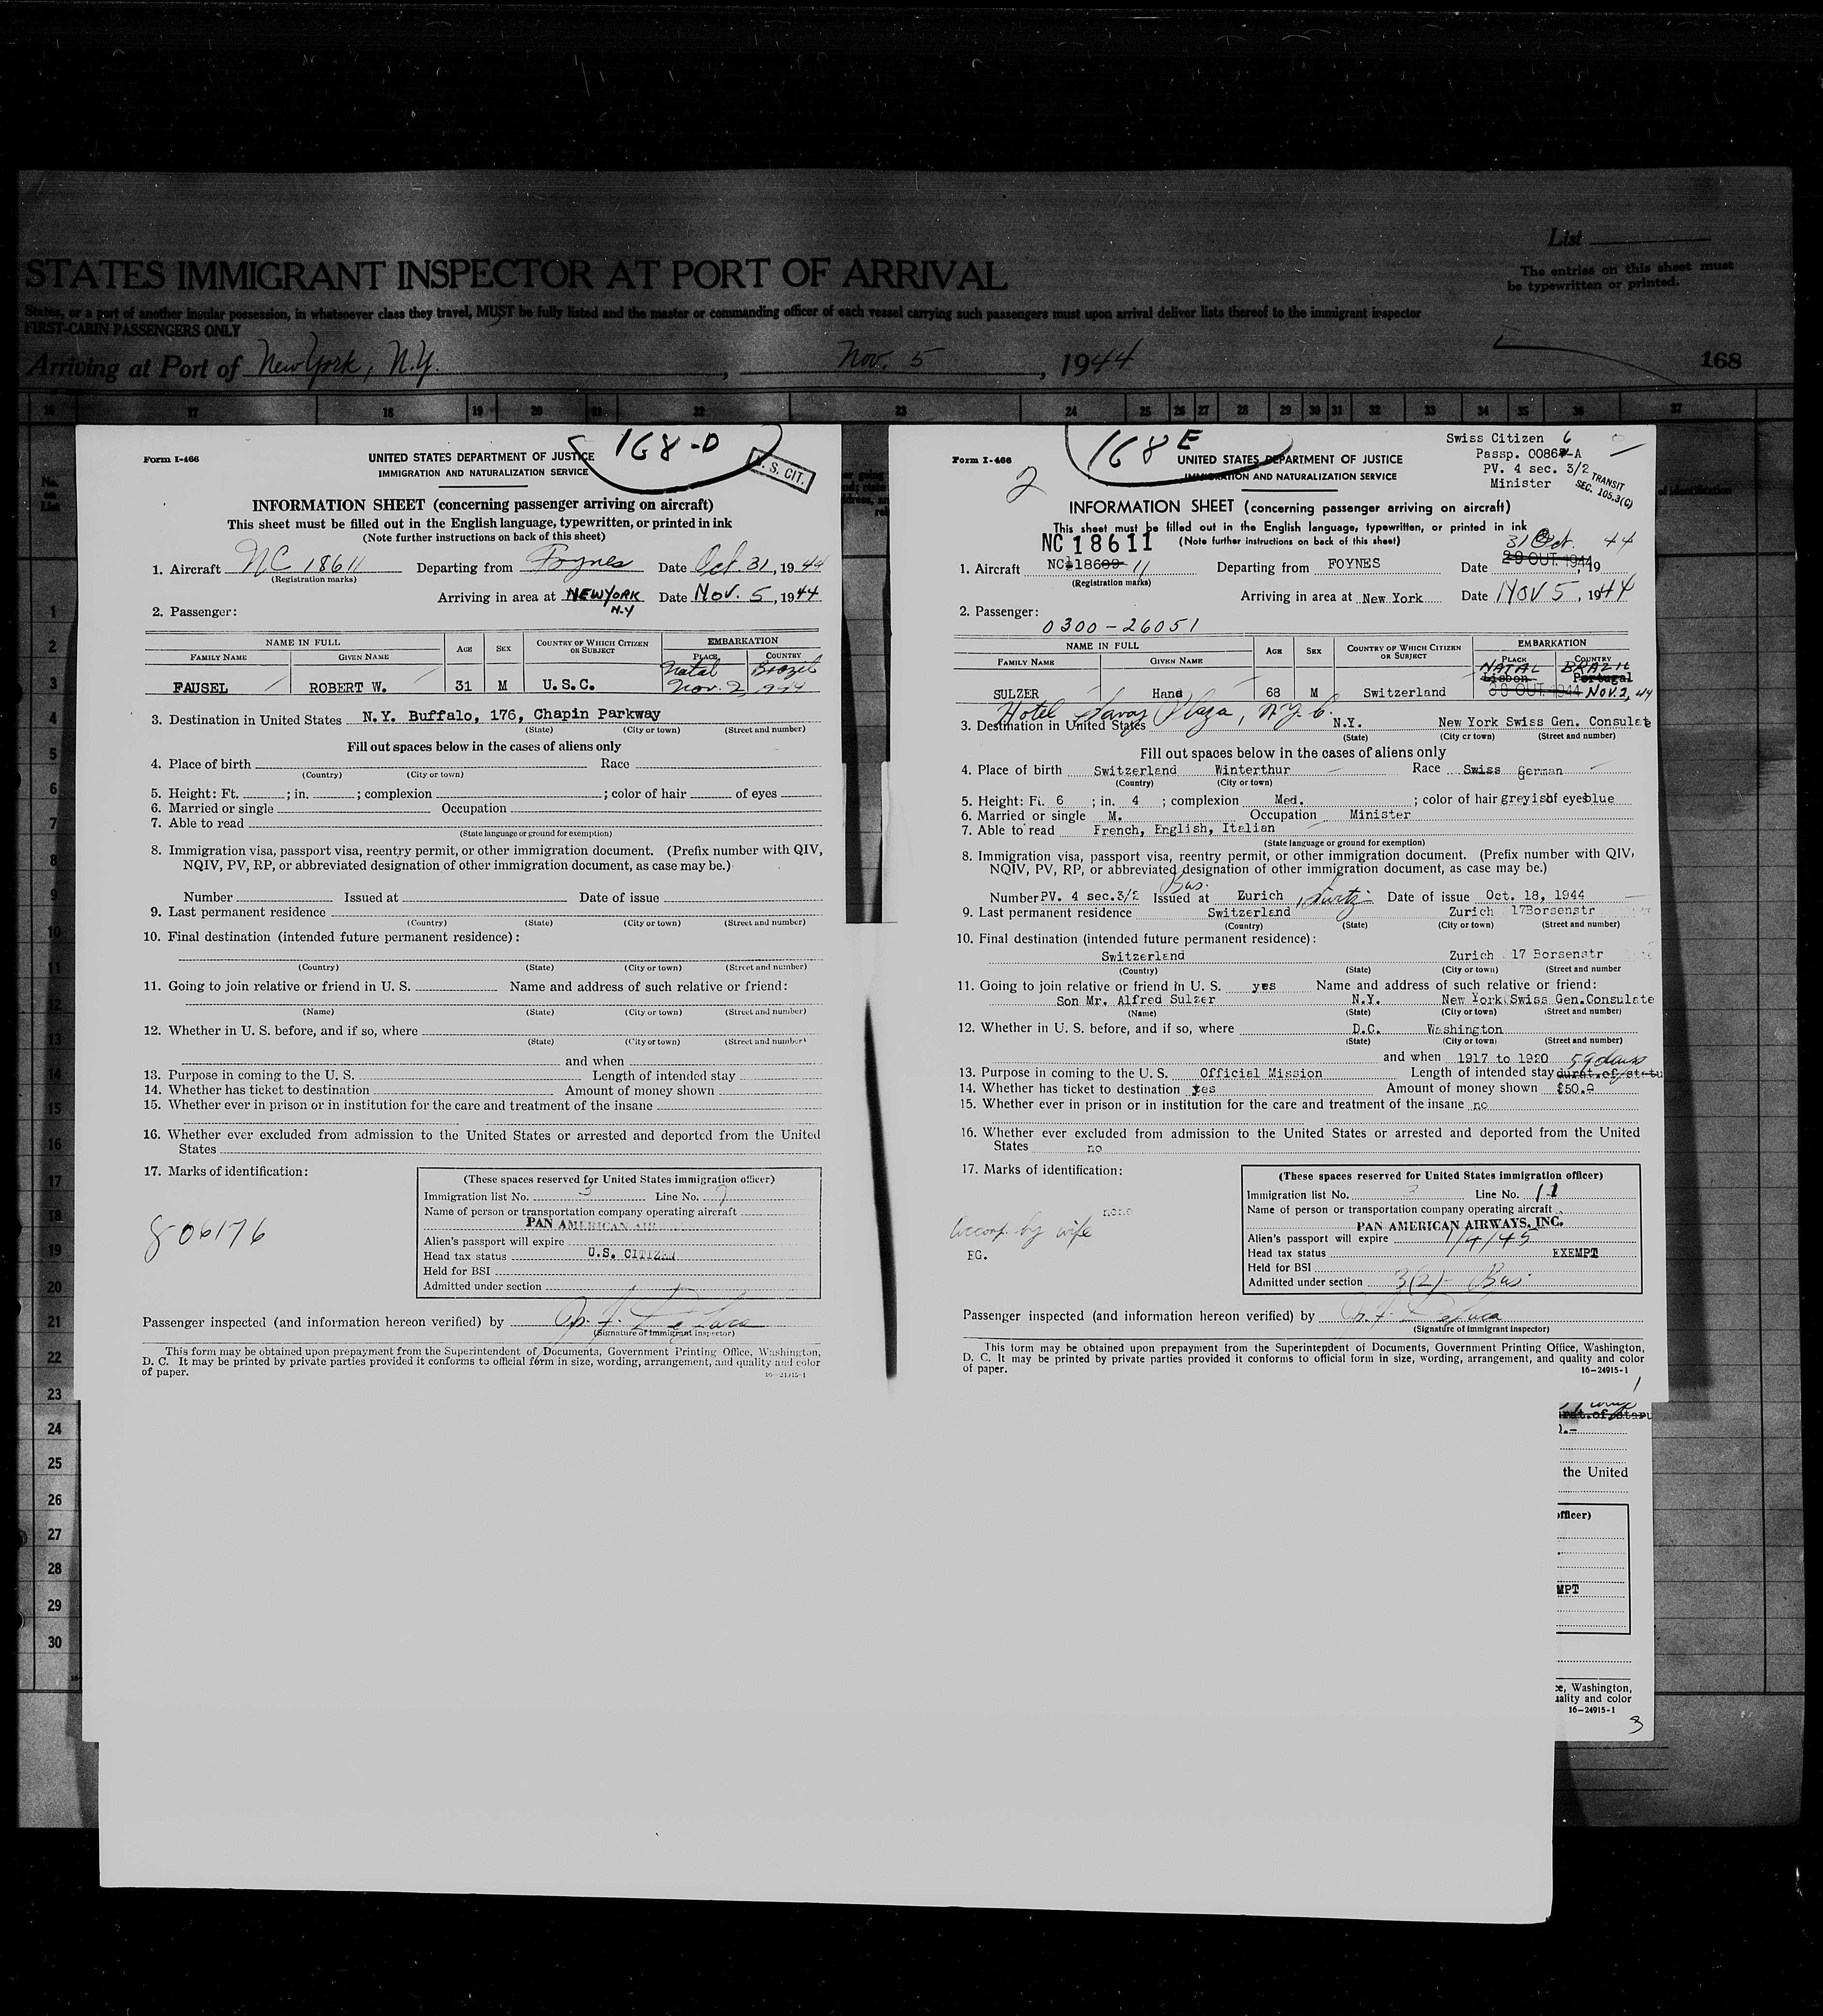 List
STATES IMMIGRANT INSPECTOR AT PORT OF ARRIVAL
The entries on this sheet must
be typewritten or printed.
States, or a port of another insular possession, in whatsoever class they travel, MUST be fully listed and the master or commanding officer of each vessel carrying such passengers must upon arrival deliver lists thereof to the immigrant inspector
FIRST-CABIN PASSENGERS ONLY
Arriving at Port of New York, N.Y. , Nov. 5 , 1944
168
16 17 18 19 20 21 22 23 24 25 26 27 28 29 30 31 32 33 34 35 36 37
No. on List
1
2
3
4
5
6
7
8
9
10
11
12
13
14
15
16
17
18
19
20
21
22
23
24
25
26
27
28
29
30
168-D
Form I-466
UNITED STATES DEPARTMENT OF JUSTICE
U. S. CIT.
IMMIGRATION AND NATURALIZATION SERVICE
INFORMATION SHEET (concerning passenger arriving on aircraft)
This sheet must be filled out in the English language, typewritten, or printed in ink
(Note further instructions on back of this sheet)
1. Aircraft NC 18611 Departing from Foynes Date Oct 31, 1944
(Registration marks)
Arriving in area at NEW YORK N.Y Date Nov. 5, 1944
2. Passenger:
NAME IN FULL AGE SEX COUNTRY OF WHICH CITIZEN OR SUBJECT EMBARKATION
FAMILY NAME GIVEN NAME PLACE COUNTRY
Natal Brazil
FAUSEL ROBERT W. 31 M U.S.C. Nov. 2, 1944
3. Destination in United States N.Y. Buffalo, 176, Chapin Parkway
(State) (City or town) (Street and number)
Fill out spaces below in the cases of aliens only
4. Place of birth Race
(Country) (City or town)
5. Height: Ft. ; in. ; complexion ; color of hair of eyes
6. Married or single Occupation
7. Able to read
(State language or ground for exemption)
8. Immigration visa, passport visa, reentry permit, or other immigration document. (Prefix number with QIV,
NQIV, PV, RP, or abbreviated designation of other immigration document, as case may be.)
Number Issued at Date of issue
9. Last permanent residence
(Country) (State) (City or town) (Street and number)
10. Final destination (intended future permanent residence):
(Country) (State) (City or town) (Street and number)
11. Going to join relative or friend in U. S. Name and address of such relative or friend:
(Name) (State) (City or town) (Street and number)
12. Whether in U. S. before, and if so, where
(State) (City or town) (Street and number)
and when
13. Purpose in coming to the U. S. Length of intended stay
14. Whether has ticket to destination Amount of money shown
15. Whether ever in prison or in institution for the care and treatment of the insane
16. Whether ever excluded from admission to the United States or arrested and deported from the United
States
17. Marks of identification:
806176
(These spaces reserved for United States immigration officer)
Immigration list No. 3 Line No. 7
Name of person or transportation company operating aircraft
PAN AMERICAN AIR
Alien's passport will expire
Head tax status U.S. CITIZEN
Held for BSI
Admitted under section
Passenger inspected (and information hereon verified) by
(Signature of immigrant inspector)
This form may be obtained upon prepayment from the Superintendent of Documents, Government Printing Office, Washington,
D. C. It may be printed by private parties provided it conforms to official form in size, wording, arrangement, and quality and color
of paper.
16-24915-1
168 E
2
Swiss Citizen 6
Passp. 0086-A
PV. 4 sec. 3/2
Minister
TRANSIT
SEC. 105.3(C)
Form I-466
UNITED STATES DEPARTMENT OF JUSTICE
IMMIGRATION AND NATURALIZATION SERVICE
INFORMATION SHEET (concerning passenger arriving on aircraft)
This sheet must be filled out in the English language, typewritten, or printed in ink
NC18611 (Note further instructions on back of this sheet)
31 Oct. 44
1. Aircraft NC 18609 11 Departing from FOYNES Date 29 OUT. 1944, 19
(Registration marks)
Arriving in area at New York Date NOV 5, 1944
2. Passenger:
0300-26051
NAME IN FULL AGE SEX COUNTRY OF WHICH CITIZEN OR SUBJECT EMBARKATION
FAMILY NAME GIVEN NAME PLACE COUNTRY
NATAL BRAZIL
Lisbon Portugal
SULZER Hans 68 M Switzerland OUT 1944 NOV. 2, 44
Hotel Savoy Plaza, N.Y.C.
3. Destination in United States N.Y. New York Swiss Gen. Consulate
(State) (City or town) (Street and number)
Fill out spaces below in the cases of aliens only
4. Place of birth Switzerland Winterthur Race Swiss German
(Country) (City or town)
5. Height: Ft. 6 ; in. 4 ; complexion Med. ; color of hair greyish of eyes blue
6. Married or single M. Occupation Minister
7. Able to read French, English, Italian
(State language or ground for exemption)
8. Immigration visa, passport visa, reentry permit, or other immigration document. (Prefix number with QIV,
NQIV, PV, RP, or abbreviated designation of other immigration document, as case may be.)
Bus.
Number PV. 4 sec.3/2 Issued at Zurich Date of issue Oct. 18, 1944
9. Last permanent residence Switzerland Zurich 17Borsenstr
(Country) (State) (City or town) (Street and number)
10. Final destination (intended future permanent residence):
Switzerland Zurich 17 Borsenstr
(Country) (State) (City or town) (Street and number
11. Going to join relative or friend in U. S. yes Name and address of such relative or friend:
Son Mr. Alfred Sulzer N.Y. New York Swiss Gen.Consulate
(Name) (State) (City or town) (Street and number)
12. Whether in U. S. before, and if so, where D.C. Washington
(State) (City or town) (Street and number)
and when 1917 to 1920 59 days
13. Purpose in coming to the U. S. Official Mission Length of intended stay durat.of/statu
14. Whether has ticket to destination yes Amount of money shown $50.-
15. Whether ever in prison or in institution for the care and treatment of the insane no
16. Whether ever excluded from admission to the United States or arrested and deported from the United
States no
17. Marks of identification:
none
Accomp. by wife
EG.
(These spaces reserved for United States immigration officer)
Immigration list No. 3 Line No. 11
Name of person or transportation company operating aircraft
PAN AMERICAN AIRWAYS, INC.
Alien's passport will expire 1/4/45
Head tax status EXEMPT
Held for BSI
Admitted under section 3(2)- Bus.
Passenger inspected (and information hereon verified) by
(Signature of immigrant inspector)
This form may be obtained upon prepayment from the Superintendent of Documents, Government Printing Office, Washington,
D. C. It may be printed by private parties provided it conforms to official form in size, wording, arrangement, and quality and color
of paper.
16-24915-1
1
the United
officer)
MPT
e, Washington,
uality and color
16-24915-1
3